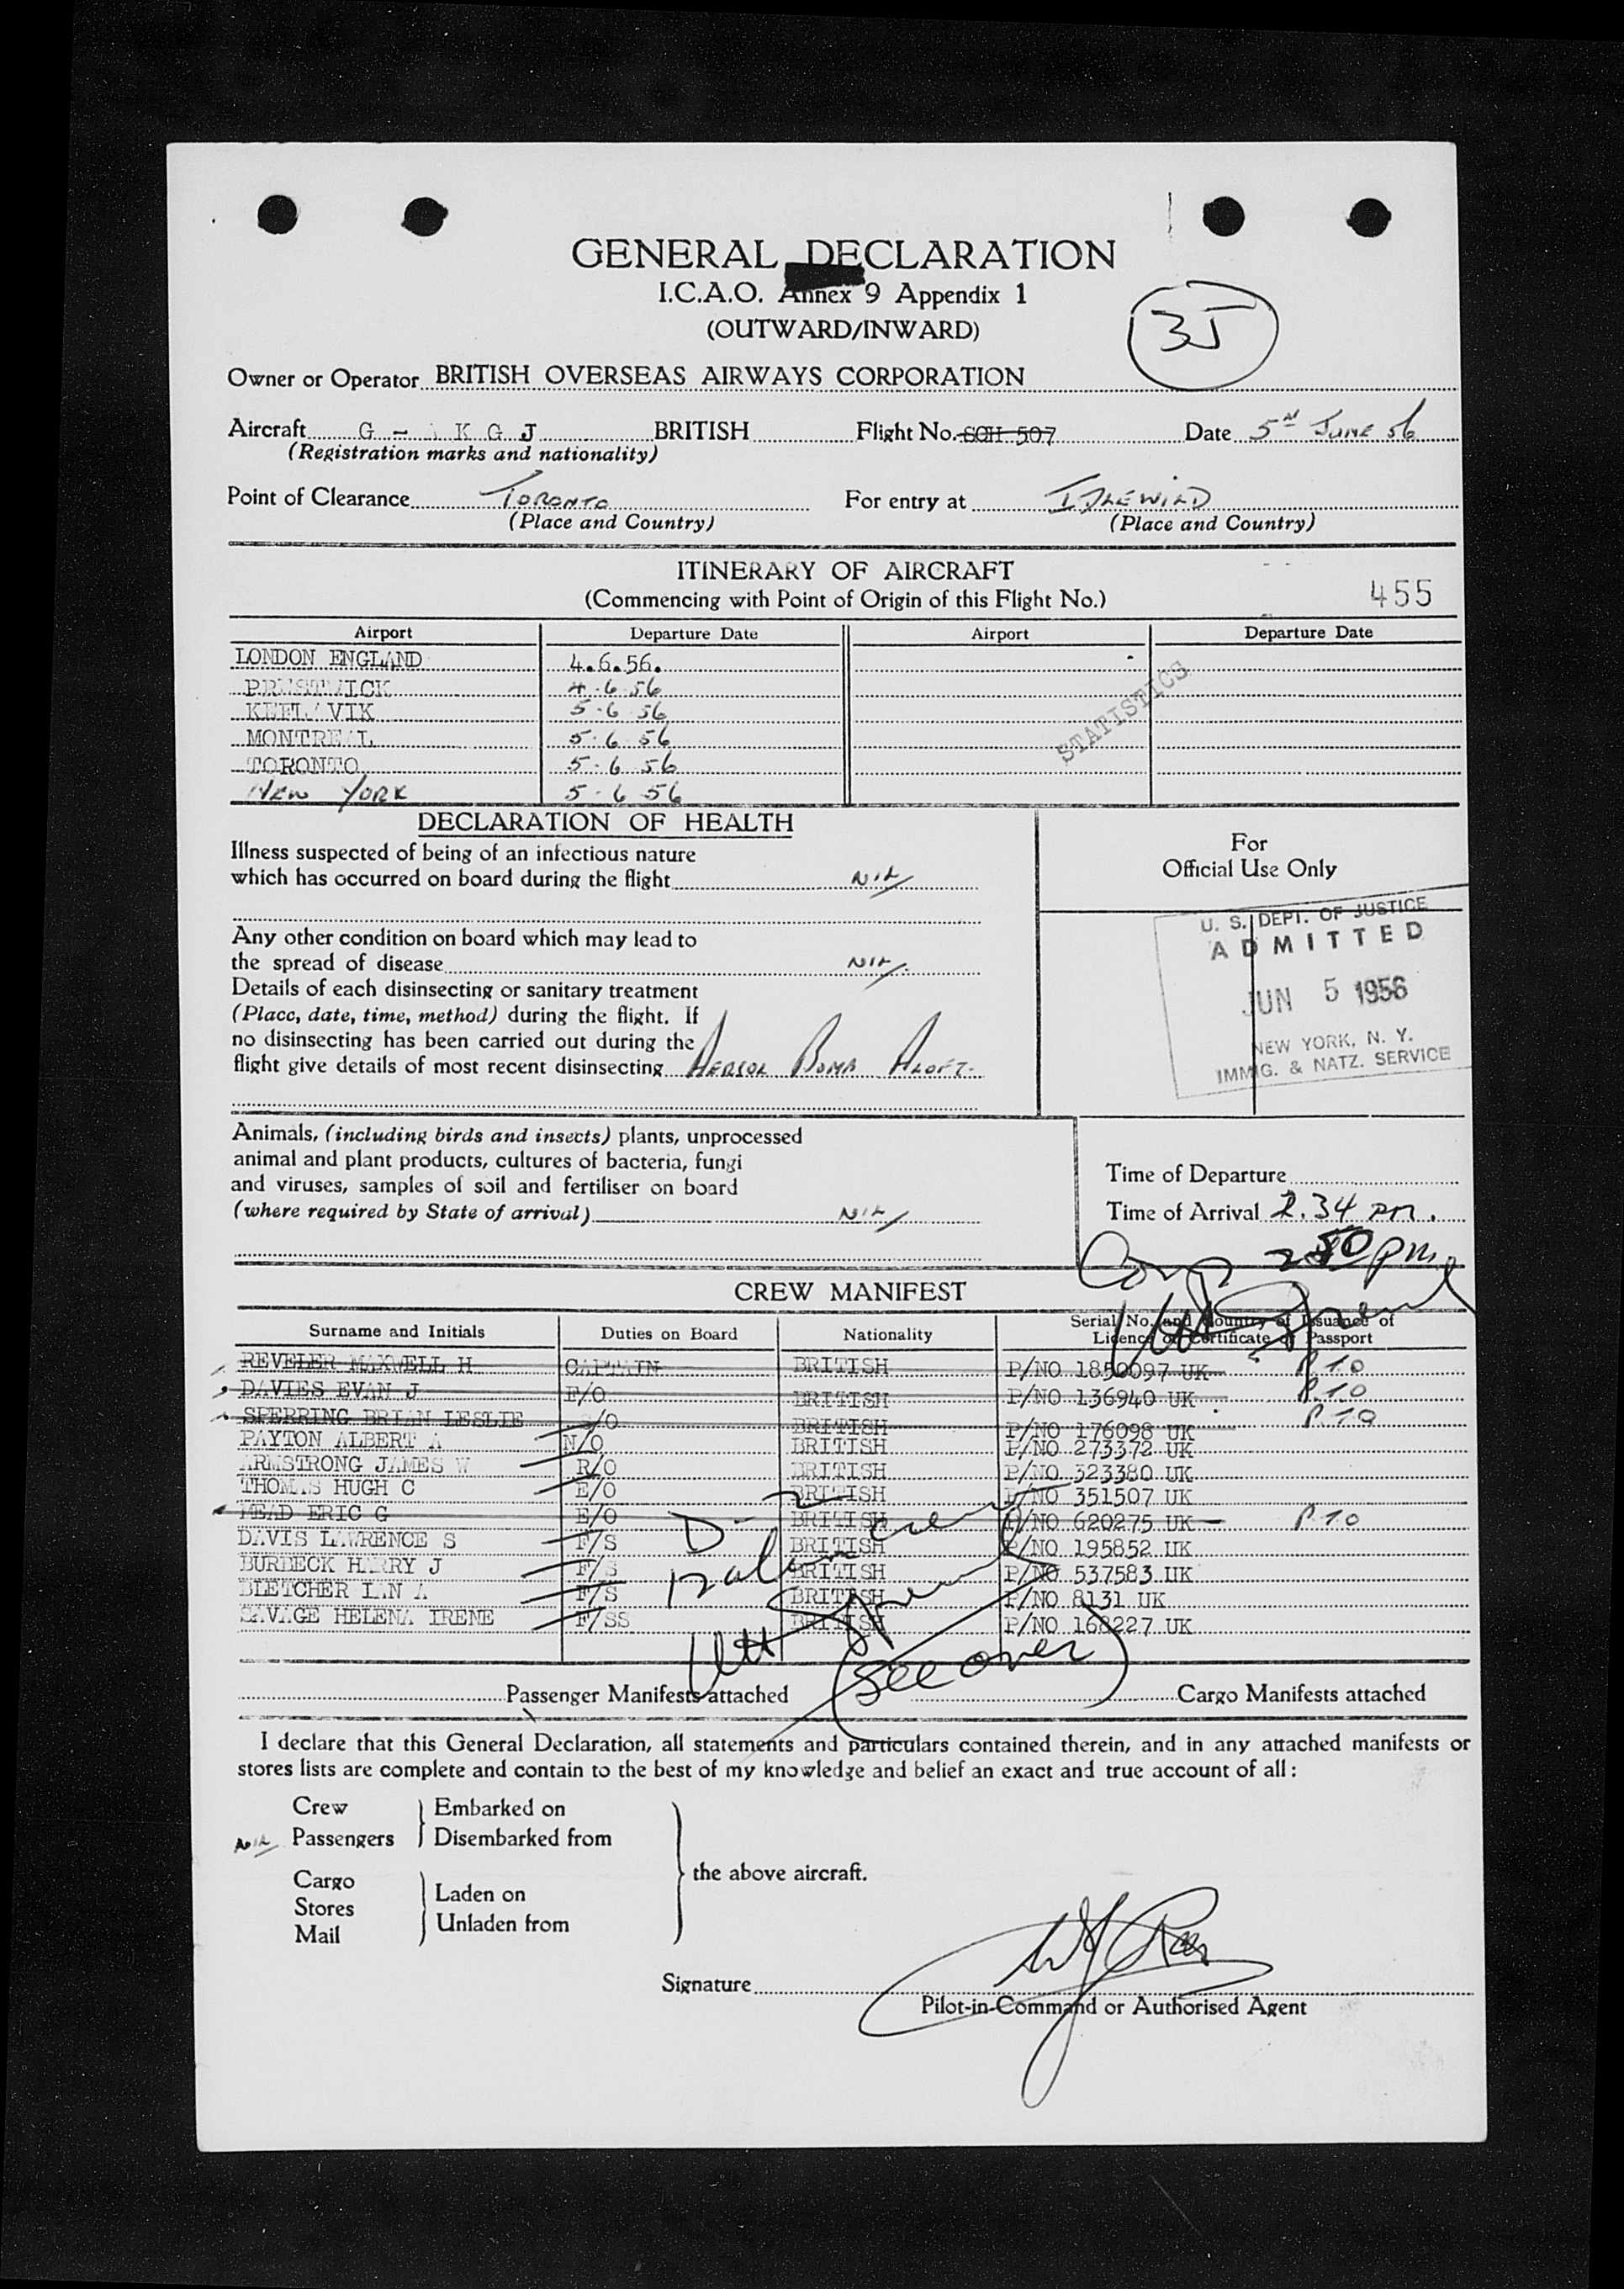 GENERAL DECLARATION
I.C.A.O. Annex 9 Appendix 1
(OUTWARD/INWARD)
35
Owner or Operator BRITISH OVERSEAS AIRWAYS CORPORATION
Aircraft G - A K G J BRITISH Flight No. SCH 507 Date 5TH JUNE 56
(Registration marks and nationality)
Point of Clearance TORONTO For entry at IDLEWILD
(Place and Country) (Place and Country)
ITINERARY OF AIRCRAFT
(Commencing with Point of Origin of this Flight No.) 455
Airport Departure Date Airport Departure Date
LONDON ENGLAND 4.6.56.
PRESTWICK 4.6.56
KEFLAVIK 5.6.56
MONTREAL 5.6.56
TORONTO 5.6.56
NEW YORK 5.6.56
STATISTICS
DECLARATION OF HEALTH
Illness suspected of being of an infectious nature
which has occurred on board during the flight NIL
Any other condition on board which may lead to
the spread of disease NIL
Details of each disinsecting or sanitary treatment
(Place, date, time, method) during the flight. If
no disinsecting has been carried out during the
flight give details of most recent disinsecting AERSOL BOMB ALOFT.
For
Official Use Only
U. S. DEPT. OF JUSTICE
ADMITTED
JUN 5 1956
NEW YORK, N. Y.
IMMIG. & NATZ. SERVICE
Animals, (including birds and insects) plants, unprocessed
animal and plant products, cultures of bacteria, fungi
and viruses, samples of soil and fertiliser on board
(where required by State of arrival) NIL
Time of Departure
Time of Arrival 2.34 PM.
Comp 2 50 pm
CREW MANIFEST
Surname and Initials Duties on Board Nationality Serial No. and Country of Issuance of
Licence or Certificate or Passport
REVELER MAXWELL H CAPTAIN BRITISH P/NO 1850097 UK P.T.O
DAVIES EVAN J F/O BRITISH P/NO 136940 UK P.T.O
SPERRING BRIAN LESLIE /O BRITISH P/NO 176098 UK P.T.O
PAYTON ALBERT A N/O BRITISH P/NO 273372 UK
ARMSTRONG JAMES W R/O BRITISH P/NO 323380 UK
THOMAS HUGH C E/O BRITISH P/NO 351507 UK
MEAD ERIC G E/O BRITISH P/NO 620275 UK P.T.O
DAVIS LAWRENCE S F/S BRITISH P/NO 195852 UK
BURDECK HARRY J F/S BRITISH P/NO 537583 UK
BLETCHER IAN A F/S BRITISH P/NO 8131 UK
SAVAGE HELENA IRENE F/SS BRITISH P/NO 168227 UK
(See over)
Passenger Manifests attached Cargo Manifests attached
I declare that this General Declaration, all statements and particulars contained therein, and in any attached manifests or
stores lists are complete and contain to the best of my knowledge and belief an exact and true account of all:
Crew Embarked on
NIL Passengers Disembarked from
the above aircraft.
Cargo
Stores Laden on
Mail Unladen from
Signature
Pilot-in-Command or Authorised Agent